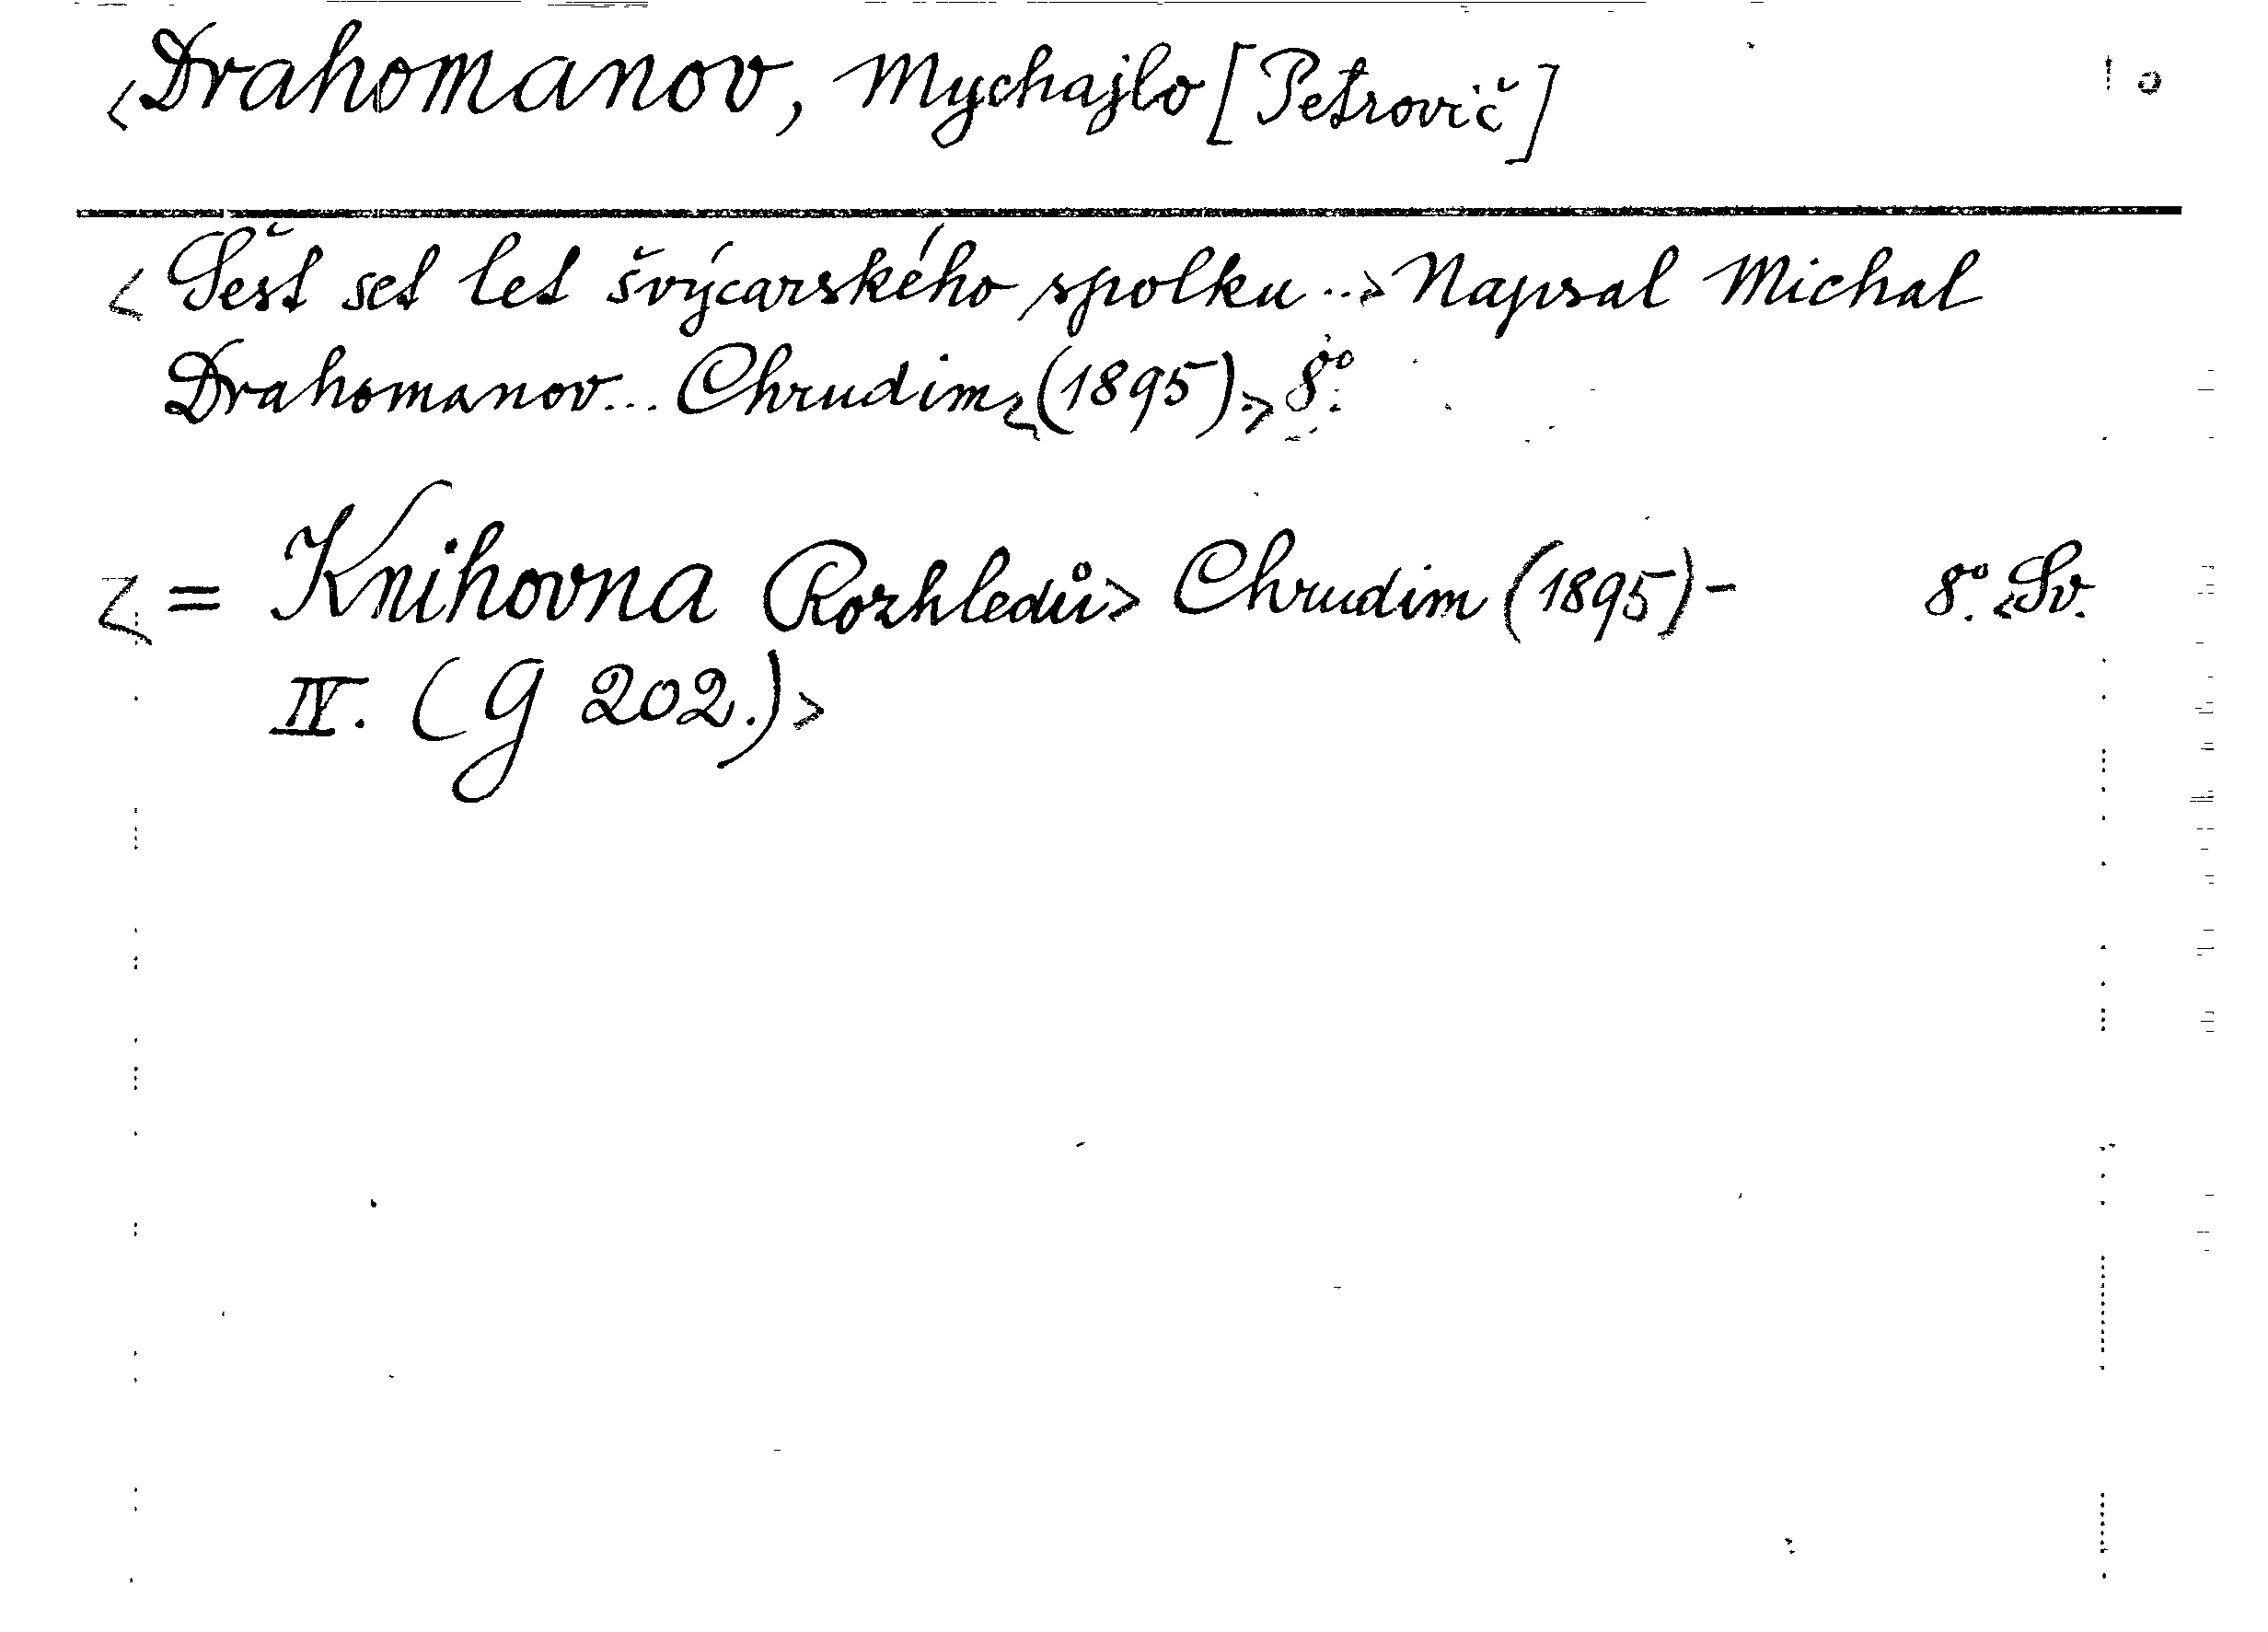 <Drahomanov, Mychajlo [Petrovič]
<Šest set let švýcarského spolku..> Napsal Michal
Drahomanov... Chrudim<(1895).> 8°.
<= Knihovna Rozhledů> Chrudim (1895)- 8°. <Sv.
IV. (G 202.)>